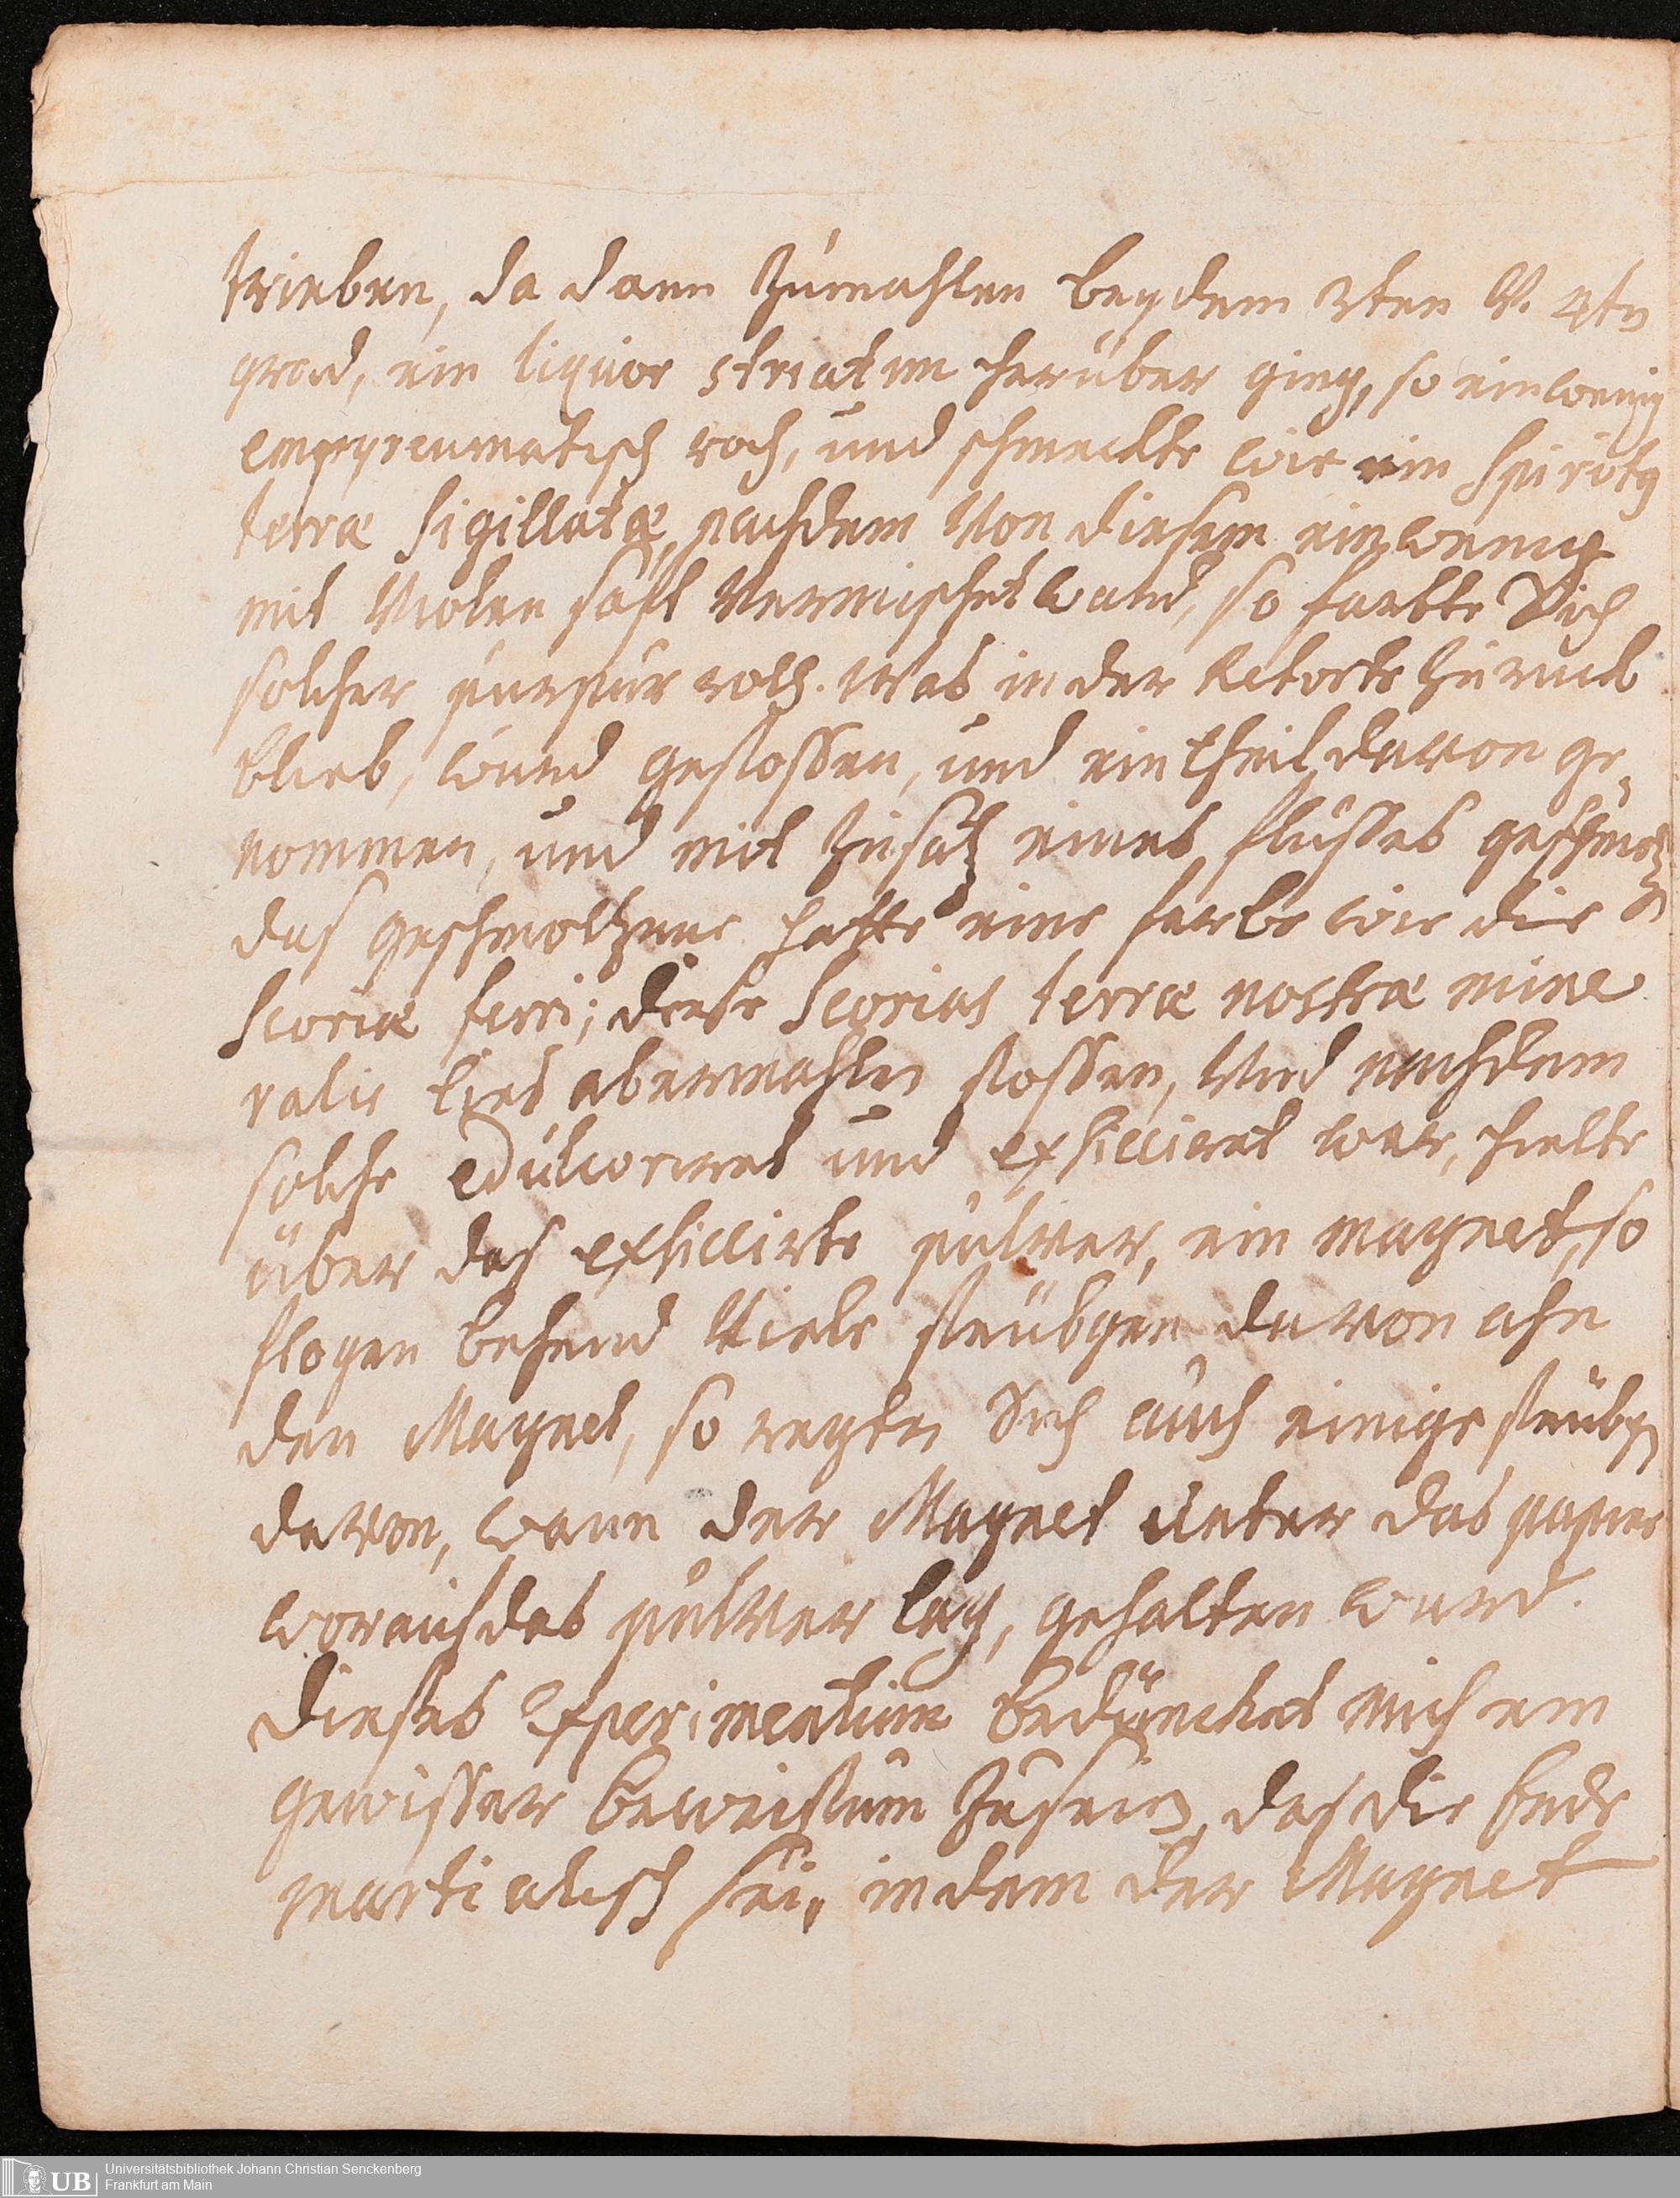 trieben, da dann zumahlen bey dem 3ten V. 4tn
grad, ein liquor striatim herüber ging, so ein wenig
empyreumatisch roch, und schmeckte wie ein Spiritg
terræ Sigillatæ, nachdem Von diesem ein wenig
mit Violen safft Vermischet ward, so farbte Sich
solcher purpur roth. Was in der Retorte Zuruck
blieb, wurd gestossen, und ein theil davon ge„
nommen, und mit Zusatz eines flusses geschmoltzen
das geschmoltzene hatte eine farbe wie die
Scoriæ ferri; diese Scorias terræ nostræ mine
ralis lies abermahln stossen, Und nachdem
solche edulcorirt und exsiccirt war, hielte
über das exsiccirte pulver, ein magnet, so
flogen behend Viele stäubgen davon ahn
den Magnet, so regten Sich auch einige stäubgn
davon, wann der Magnet unter das papier
worauf das pulver lag, gehalten wurd.
Dieses Experimentum bedüncket mich ein
gewisser beweisthum Zu sein, das die Erde
martialisch sei, indem der Magnet
Universitätsbibliothek Johann Christian Senckenberg
Frankfurt am Main
UB